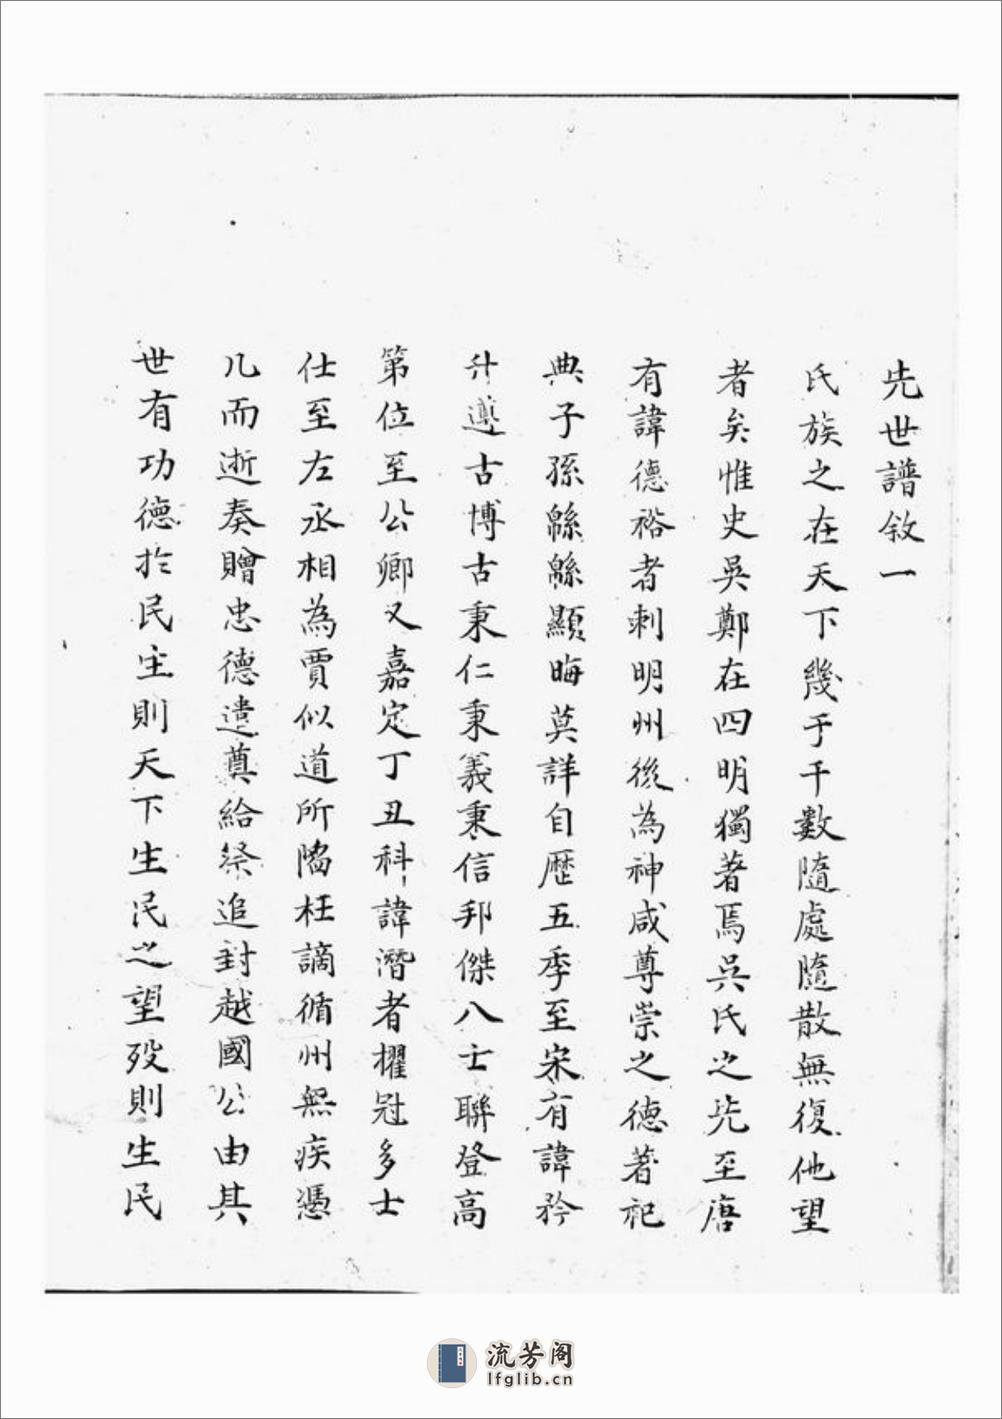 先世譜敘一
氏族之在天下幾于千數隨處隨散無復他望
者矣惟史吳鄭在四明獨著焉吳氏之先至唐
有諱德裕者刺明州後為神咸尊崇之德著祀
典子孫緜緜顯晦莫詳自歷五季至宋有諱矜
升遵古博古秉仁秉義秉信邦傑八士聯登高
第位至公卿又嘉定丁丑科諱潛者擢冠多士
仕至左丞相為賈似道所陷枉謫循州無疾憑
几而逝奏贈忠德遣奠給祭追封越國公由其
世有功德於民生則天下生民之望歿則生民
流芳阁
lfglib.cn